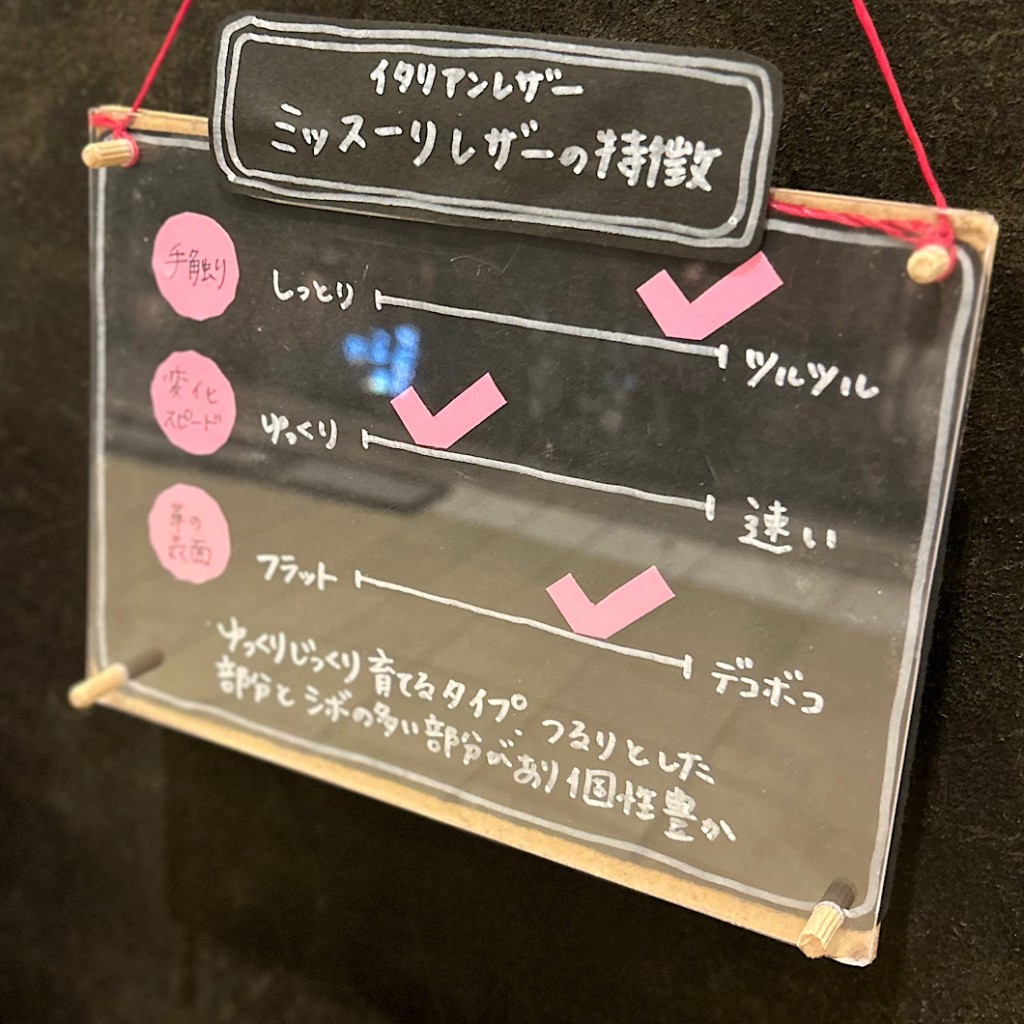 イタリアンレザー
ミッスーリレザーの特徴
手触り
しっとり
ツルツル
変化
スピード
ゆっくり
速い
革の
表面
フラット
デコボコ
ゆっくりじっくり育てるタイプ。つるりとした
部分とシボの多い部分があり個性豊か